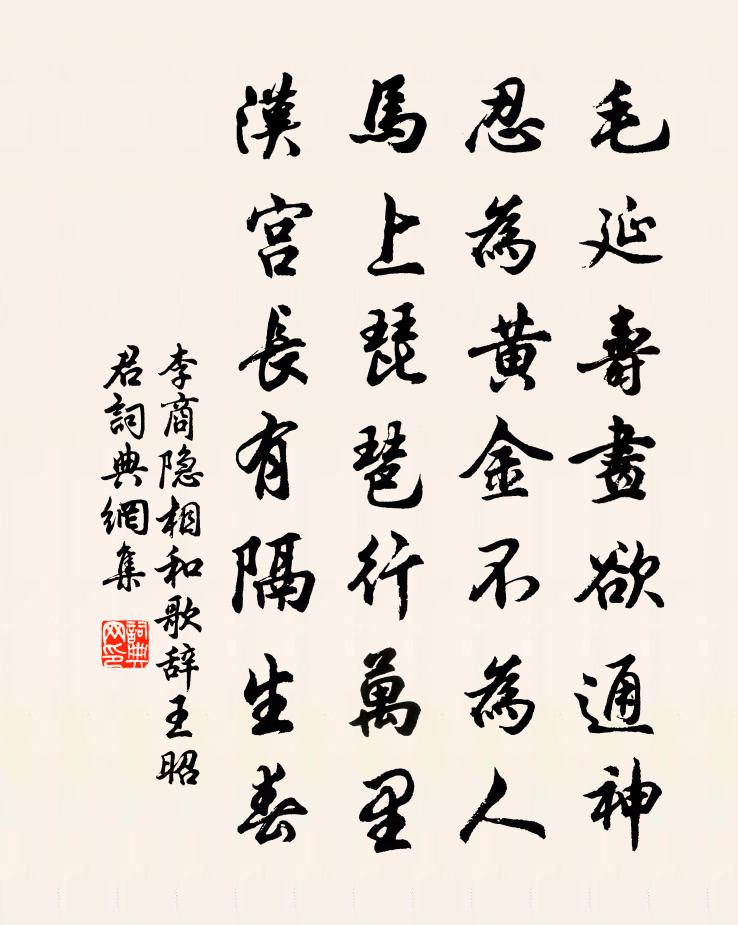 毛延壽畫欲通神
忍為黃金不為人
馬上琵琶行萬里
漢宮長有隔生春
李商隐相和歌辞王昭
君詞典網集
詞典
网印